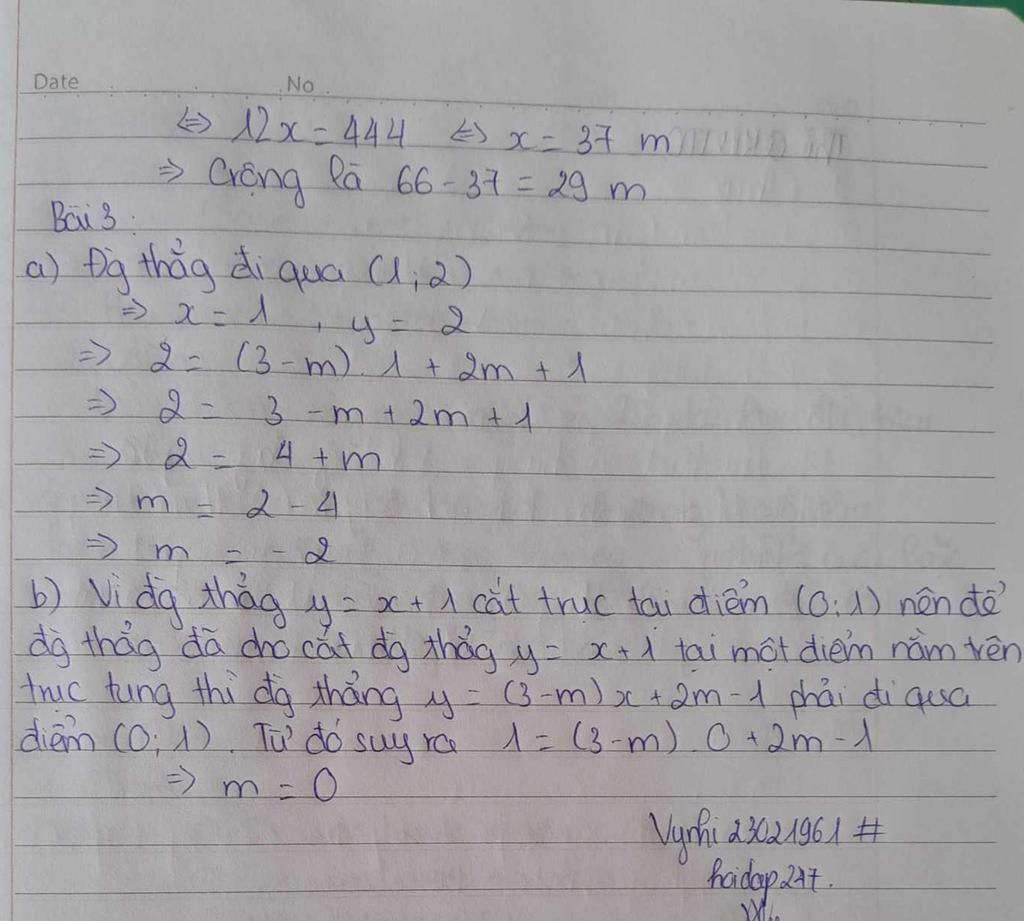 Date No
⇔ 12x = 444 ⇔ x = 37 m
⇒ Crộng là 66 - 37 = 29 m
Bài 3:
a) Đg thẳg đi qua (1; 2)
⇒ x = 1, y = 2
⇒ 2 = (3-m). 1 + 2m + 1
⇒ 2 = 3 - m + 2m + 1
⇒ 2 = 4 + m
⇒ m = 2 - 4
⇒ m = - 2
b) Vì đg thẳg y = x + 1 cắt trục tại điểm (0; 1) nên để
đg thẳg đã cho cắt đg thẳg y = x + 1 tại một điểm nằm trên
trục tung thì đg thẳng y = (3-m)x + 2m - 1 phải đi qua
điểm (0; 1). Từ đó suy ra 1 = (3-m). 0 + 2m - 1
⇒ m = 0
Vynhi23021961 #
hoidap247.